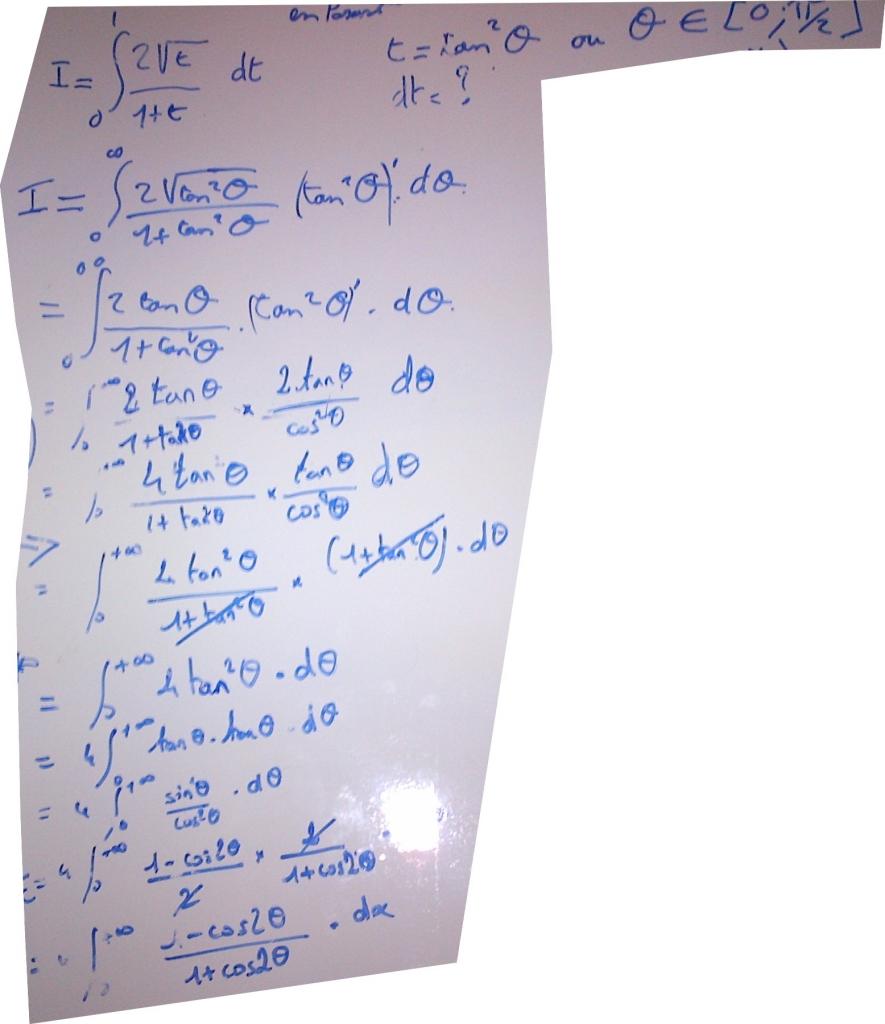 en Posant
I = ∫₀¹ 2√t / (1+t) dt t = tan²θ ou θ ∈ [0; π/2]
dt = ?
I = ∫₀^∞ 2√(tan²θ) / (1+tan²θ) (tan²θ)'. dθ.
= ∫₀^∞ 2 tanθ / (1+tan²θ) . (tan²θ)' . dθ.
= ∫₀^+∞ 2 tanθ / (1+tan²θ) × 2.tanθ / cos²θ dθ
= ∫₀^+∞ 4 tanθ / (1+tan²θ) × tanθ / cos²θ dθ
=>
= ∫₀^+∞ 4 tan²θ / (1+tan²θ) × (1+tan²θ) . dθ
= ∫₀^+∞ 4 tan²θ . dθ
= 4 ∫₀^+∞ tanθ . tanθ . dθ
= 4 ∫₀^+∞ sin²θ / cos²θ . dθ
= 4 ∫₀^+∞ (1-cos2θ) / 2 × 2 / (1+cos2θ) .
= 4 ∫₀^+∞ (1-cos2θ) / (1+cos2θ) . dx